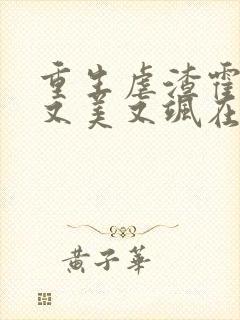 重生虐渣霍
又美又飒在
黄子华